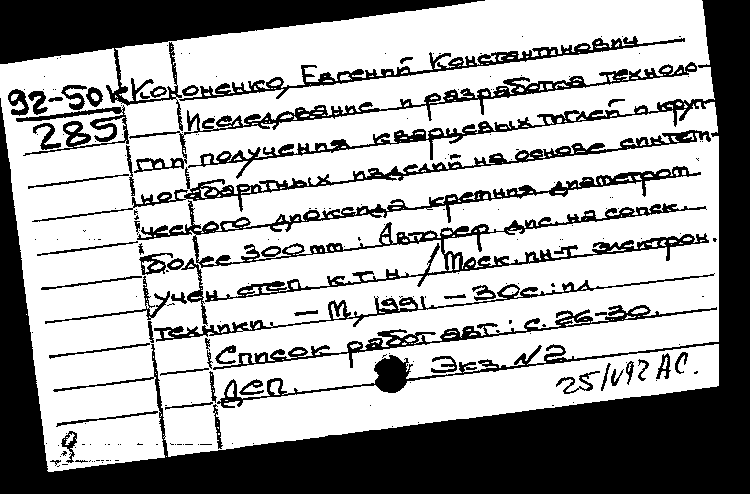 92-50К
285
Кононенко, Евгений Константинович
Исследование и разработка техноло-
гии получения кварцевых тиглей и круп-
ногабаритных изделий на основе синтети-
ческого диоксида кремния диаметром
более 300 mm : Автореф. дис. на соиск.
учен. степ. к.т.н. / Моск. ин-т электрон.
техники. – М., 1991. – 30 с. : ил.
Список работ авт. : с. 26-30.
ДСП. Экз. №2.
АС.